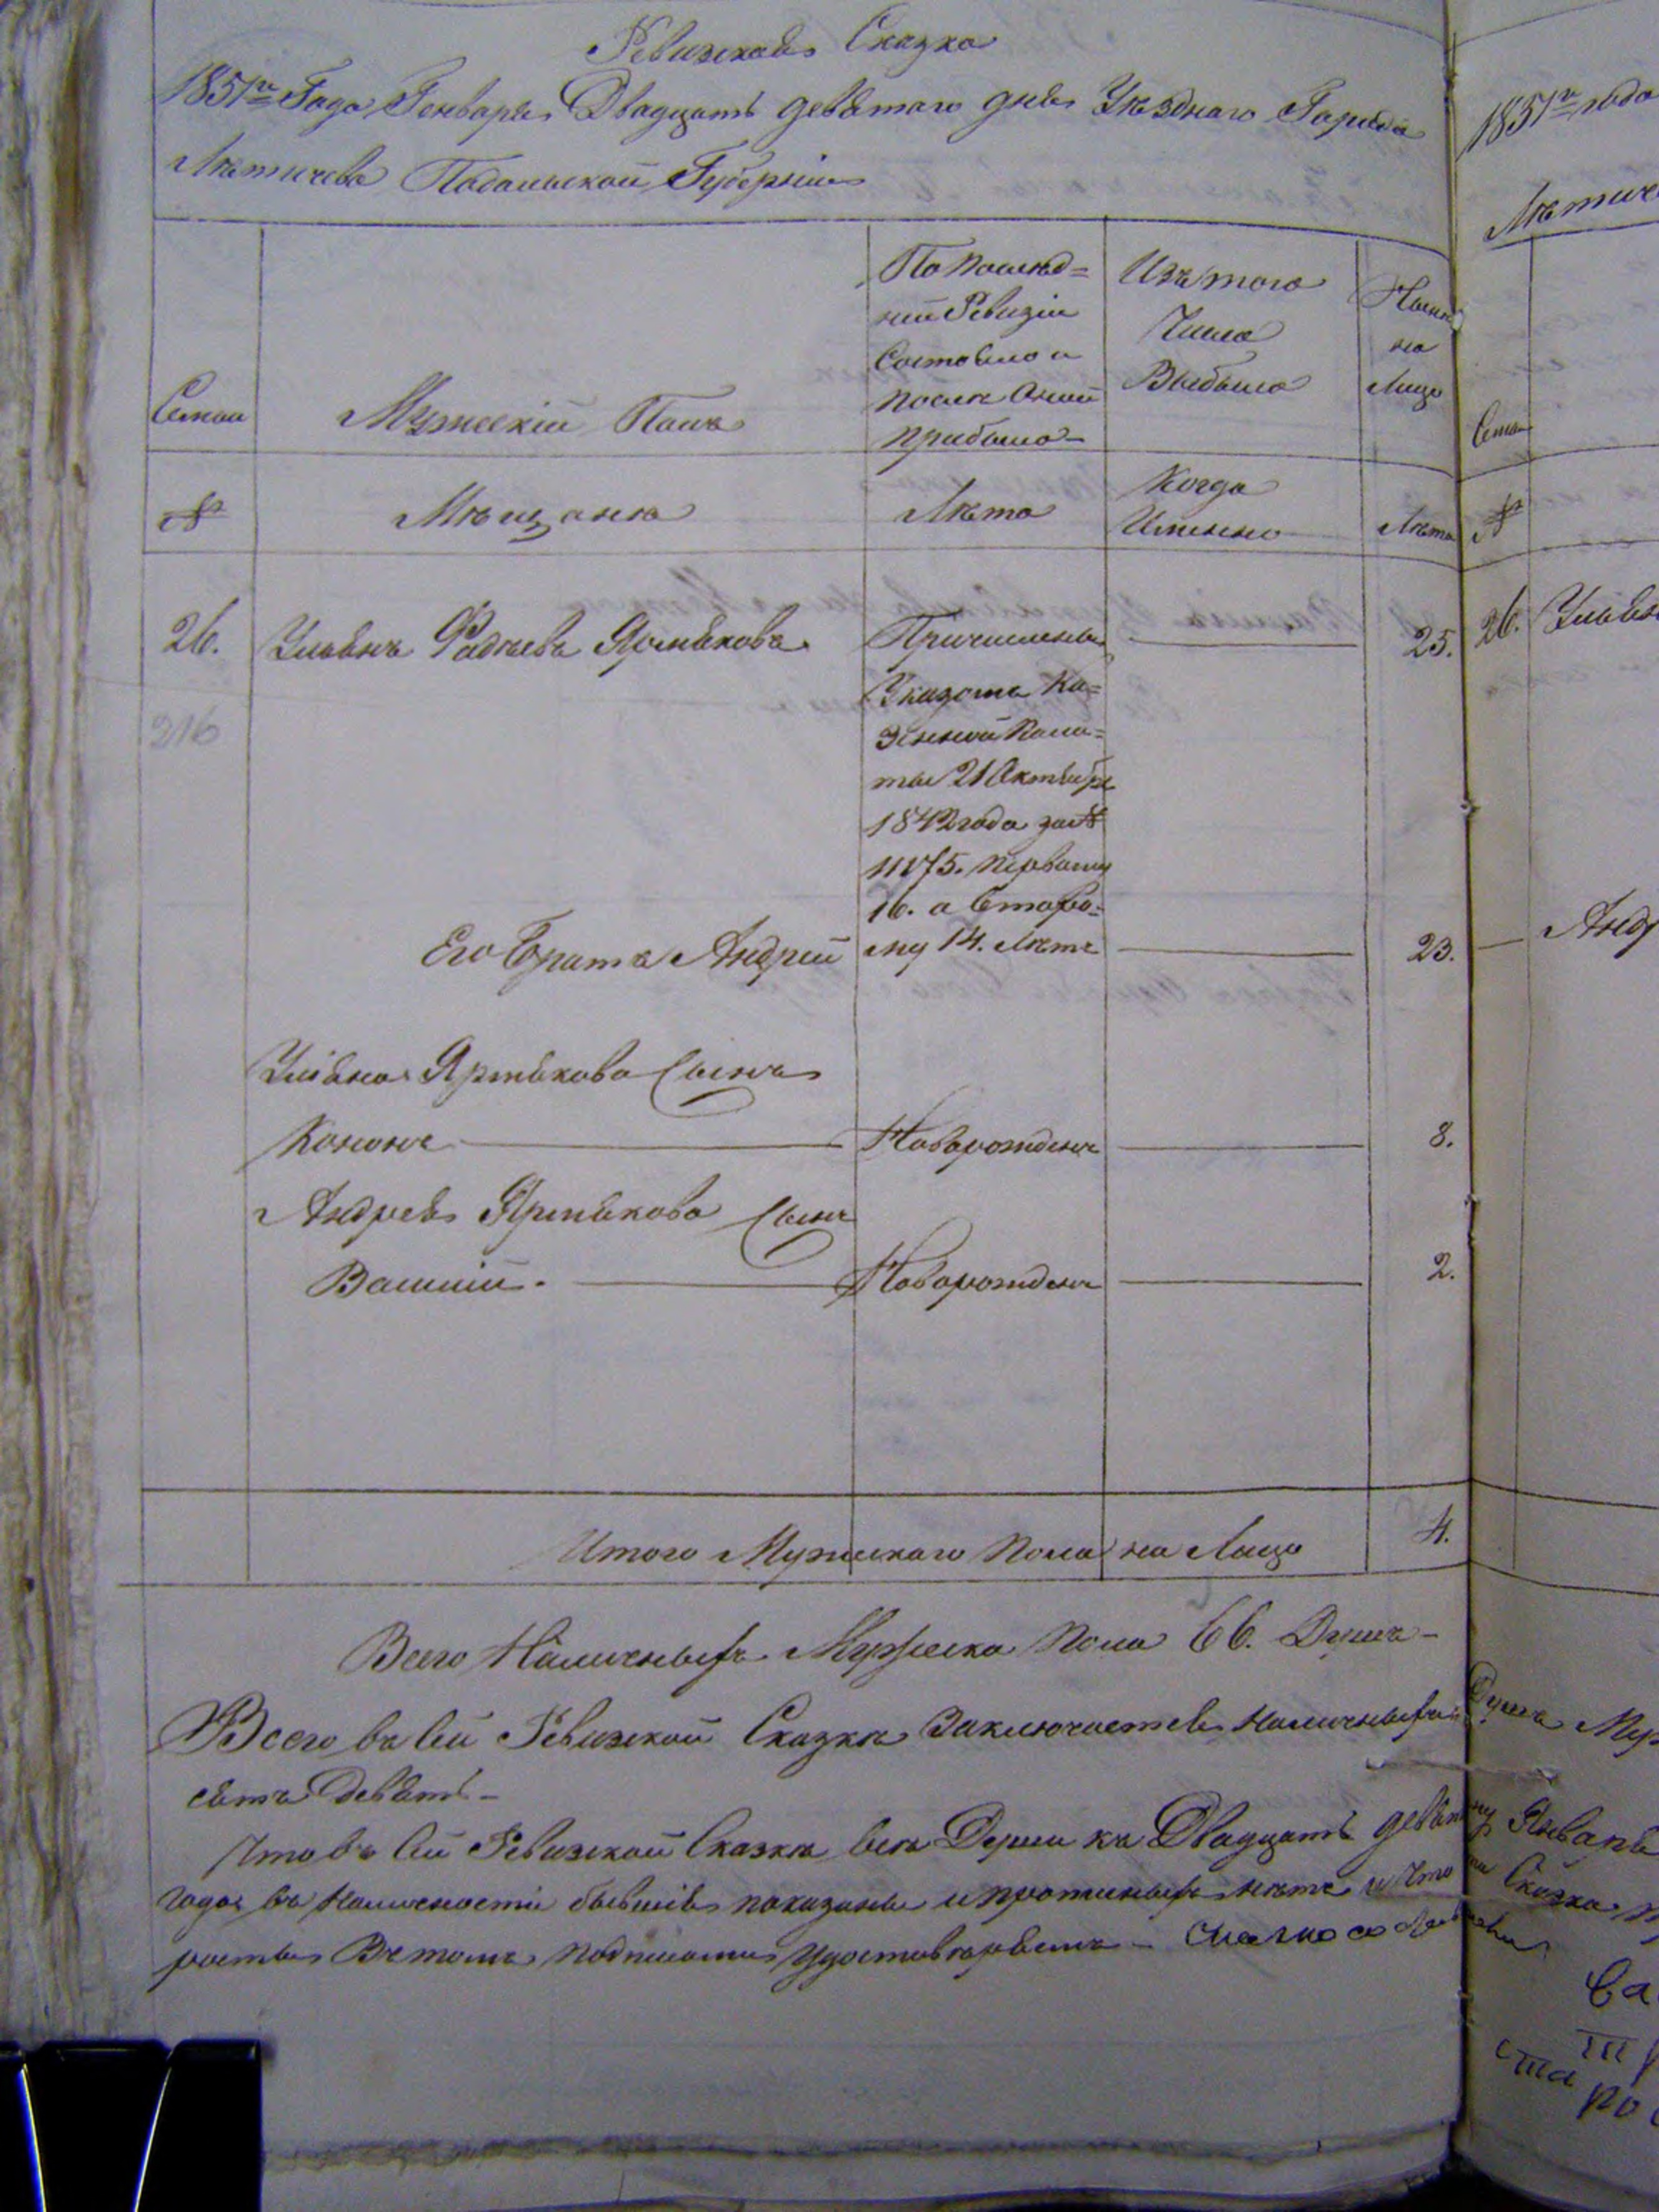 Ревизская Сказка
1851го Года Генваря Двадцать девятого дня Уезднаго Города
Лѣтичева Подольской Губерніи
По послѣд=
ней Ревизіи
Состояло и
после оной
прибыло
Изъ того
Числа
Выбыло
Ныне
на
Лицо
Семьи
Мужескій Полъ
№
Мѣщане
Лѣта
Когда
Именно
Лѣта
26.
Ульянъ Фадѣевъ
Причислены
25.
Указомъ Ка=
зенной Пала=
ты 21 Октября
1842 года за №
первому
16. а второ=
му 14. лѣтъ
Его Братъ Андрей
23.
216
Ульяна Сынъ
Кононъ
Новорожденъ
8.
Андрея Сынъ
Василій.
Новорожденъ
2.
Итого Мужескаго Пола на Лицо
4.
Всего Наличныхъ Мужеска Пола 66. Душъ
Всего въ сей Ревизской Сказкѣ Заключается Наличныхъ
сятъ Девять
Что въ сей Ревизской Сказкѣ всѣ Души къ Двадцать
года въ Наличности бывшія показаны и нѣтъ и что
Въ томъ подписомъ удостовѣряемъ
1851го года
Лѣтиче
Семьи
№
26. Ульян
Андр
Душъ Муж
Январь
Сказка